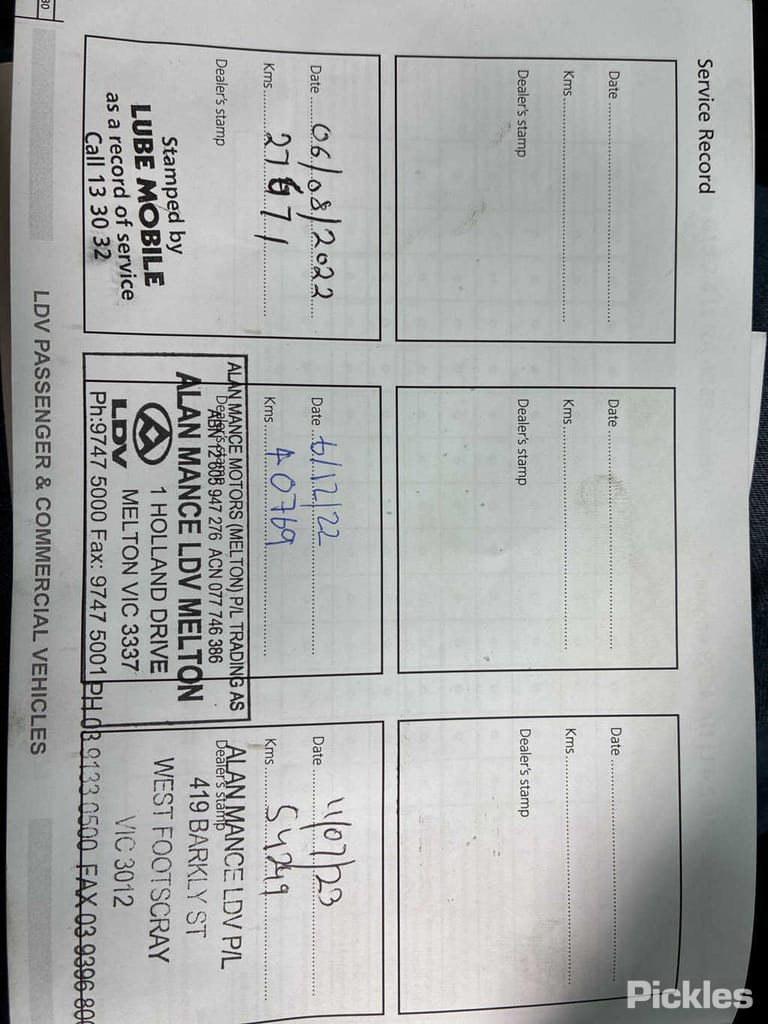 Service Record
Date
Kms
Dealer's stamp
Date
Kms
Dealer's stamp
Date
Kms
Dealer's stamp
Date 06/08/2022
Kms 27671
Dealer's stamp
Stamped by
LUBE MOBILE
as a record of service
Call 13 30 32
Date 6/12/22
Kms 40769
Dealer's stamp
ALAN MANCE MOTORS (MELTON) P/L TRADING AS
ABN 12 603 947 276 ACN 077 746 386
ALAN MANCE LDV MELTON
1 HOLLAND DRIVE
LDV MELTON VIC 3337
Ph:9747 5000 Fax: 9747 5001
Date 11/07/23
Kms 54249
Dealer's stamp
ALAN MANCE LDV P/L
419 BARKLY ST
WEST FOOTSCRAY
VIC 3012
PH 03 9133 0500 FAX 03 9396
30
LDV PASSENGER & COMMERCIAL VEHICLES
Pickles